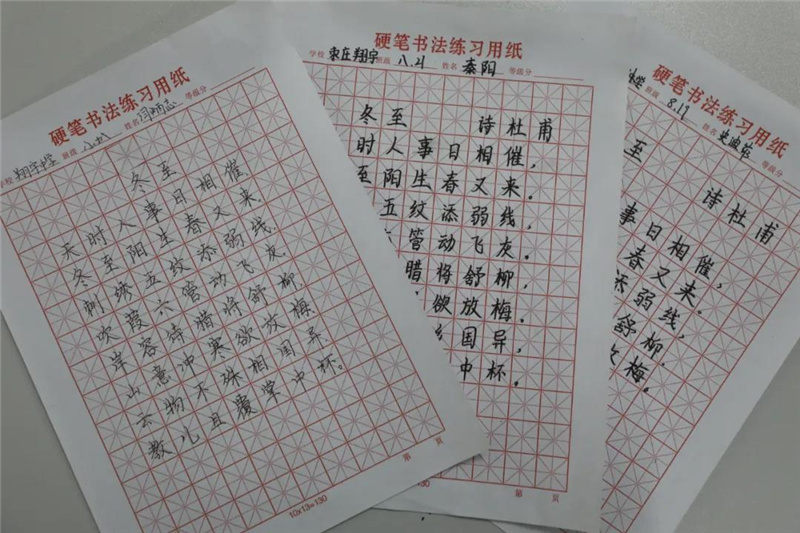 硬笔书法练习用纸
学校 翔宇 班级 姓名 等级分
冬至
天时人事日相催
冬至阳生春又来
刺绣五纹添弱线
吹葭六管动飞灰
岸容待腊将舒柳
山意冲寒欲放梅
云物不殊相国异
教儿且覆掌中杯。
第 页
10x13=130
硬笔书法练习用纸
学校 枣庄翔宇 班级 八.21 姓名 秦阳 等级分
冬至 诗杜甫
时人事日相催，
至阳生春又来.
五纹添弱线，
管动飞灰.
腊将舒柳，
欲放梅.
国异，
中杯.
第 页
130
硬笔书法练习用纸
班级 8.17 姓名 等级分
至 诗杜甫
事日相催，
春又来.
添弱线，
舒柳，
放梅.